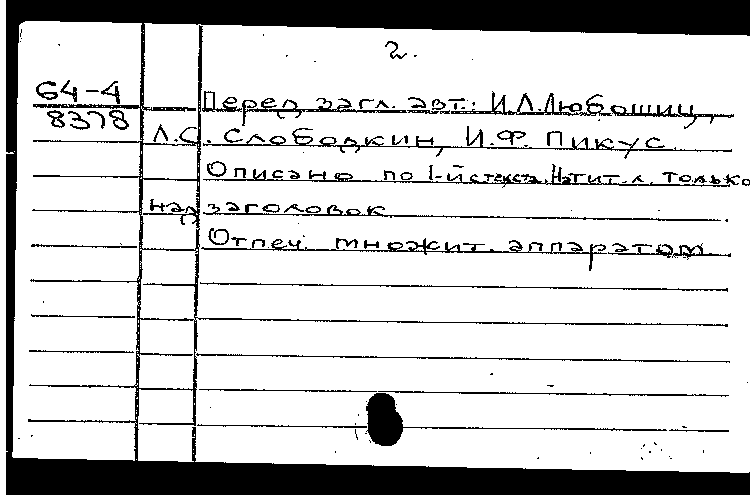 2.
64-4
8378
Перед загл. авт.: И.Л.Любошиц,
Л.С. Слободкин, И.Ф. Пикус.
Описано по 1-й с текста. На тит. л. только
над заголовок.
Отпеч. множит. аппаратом.